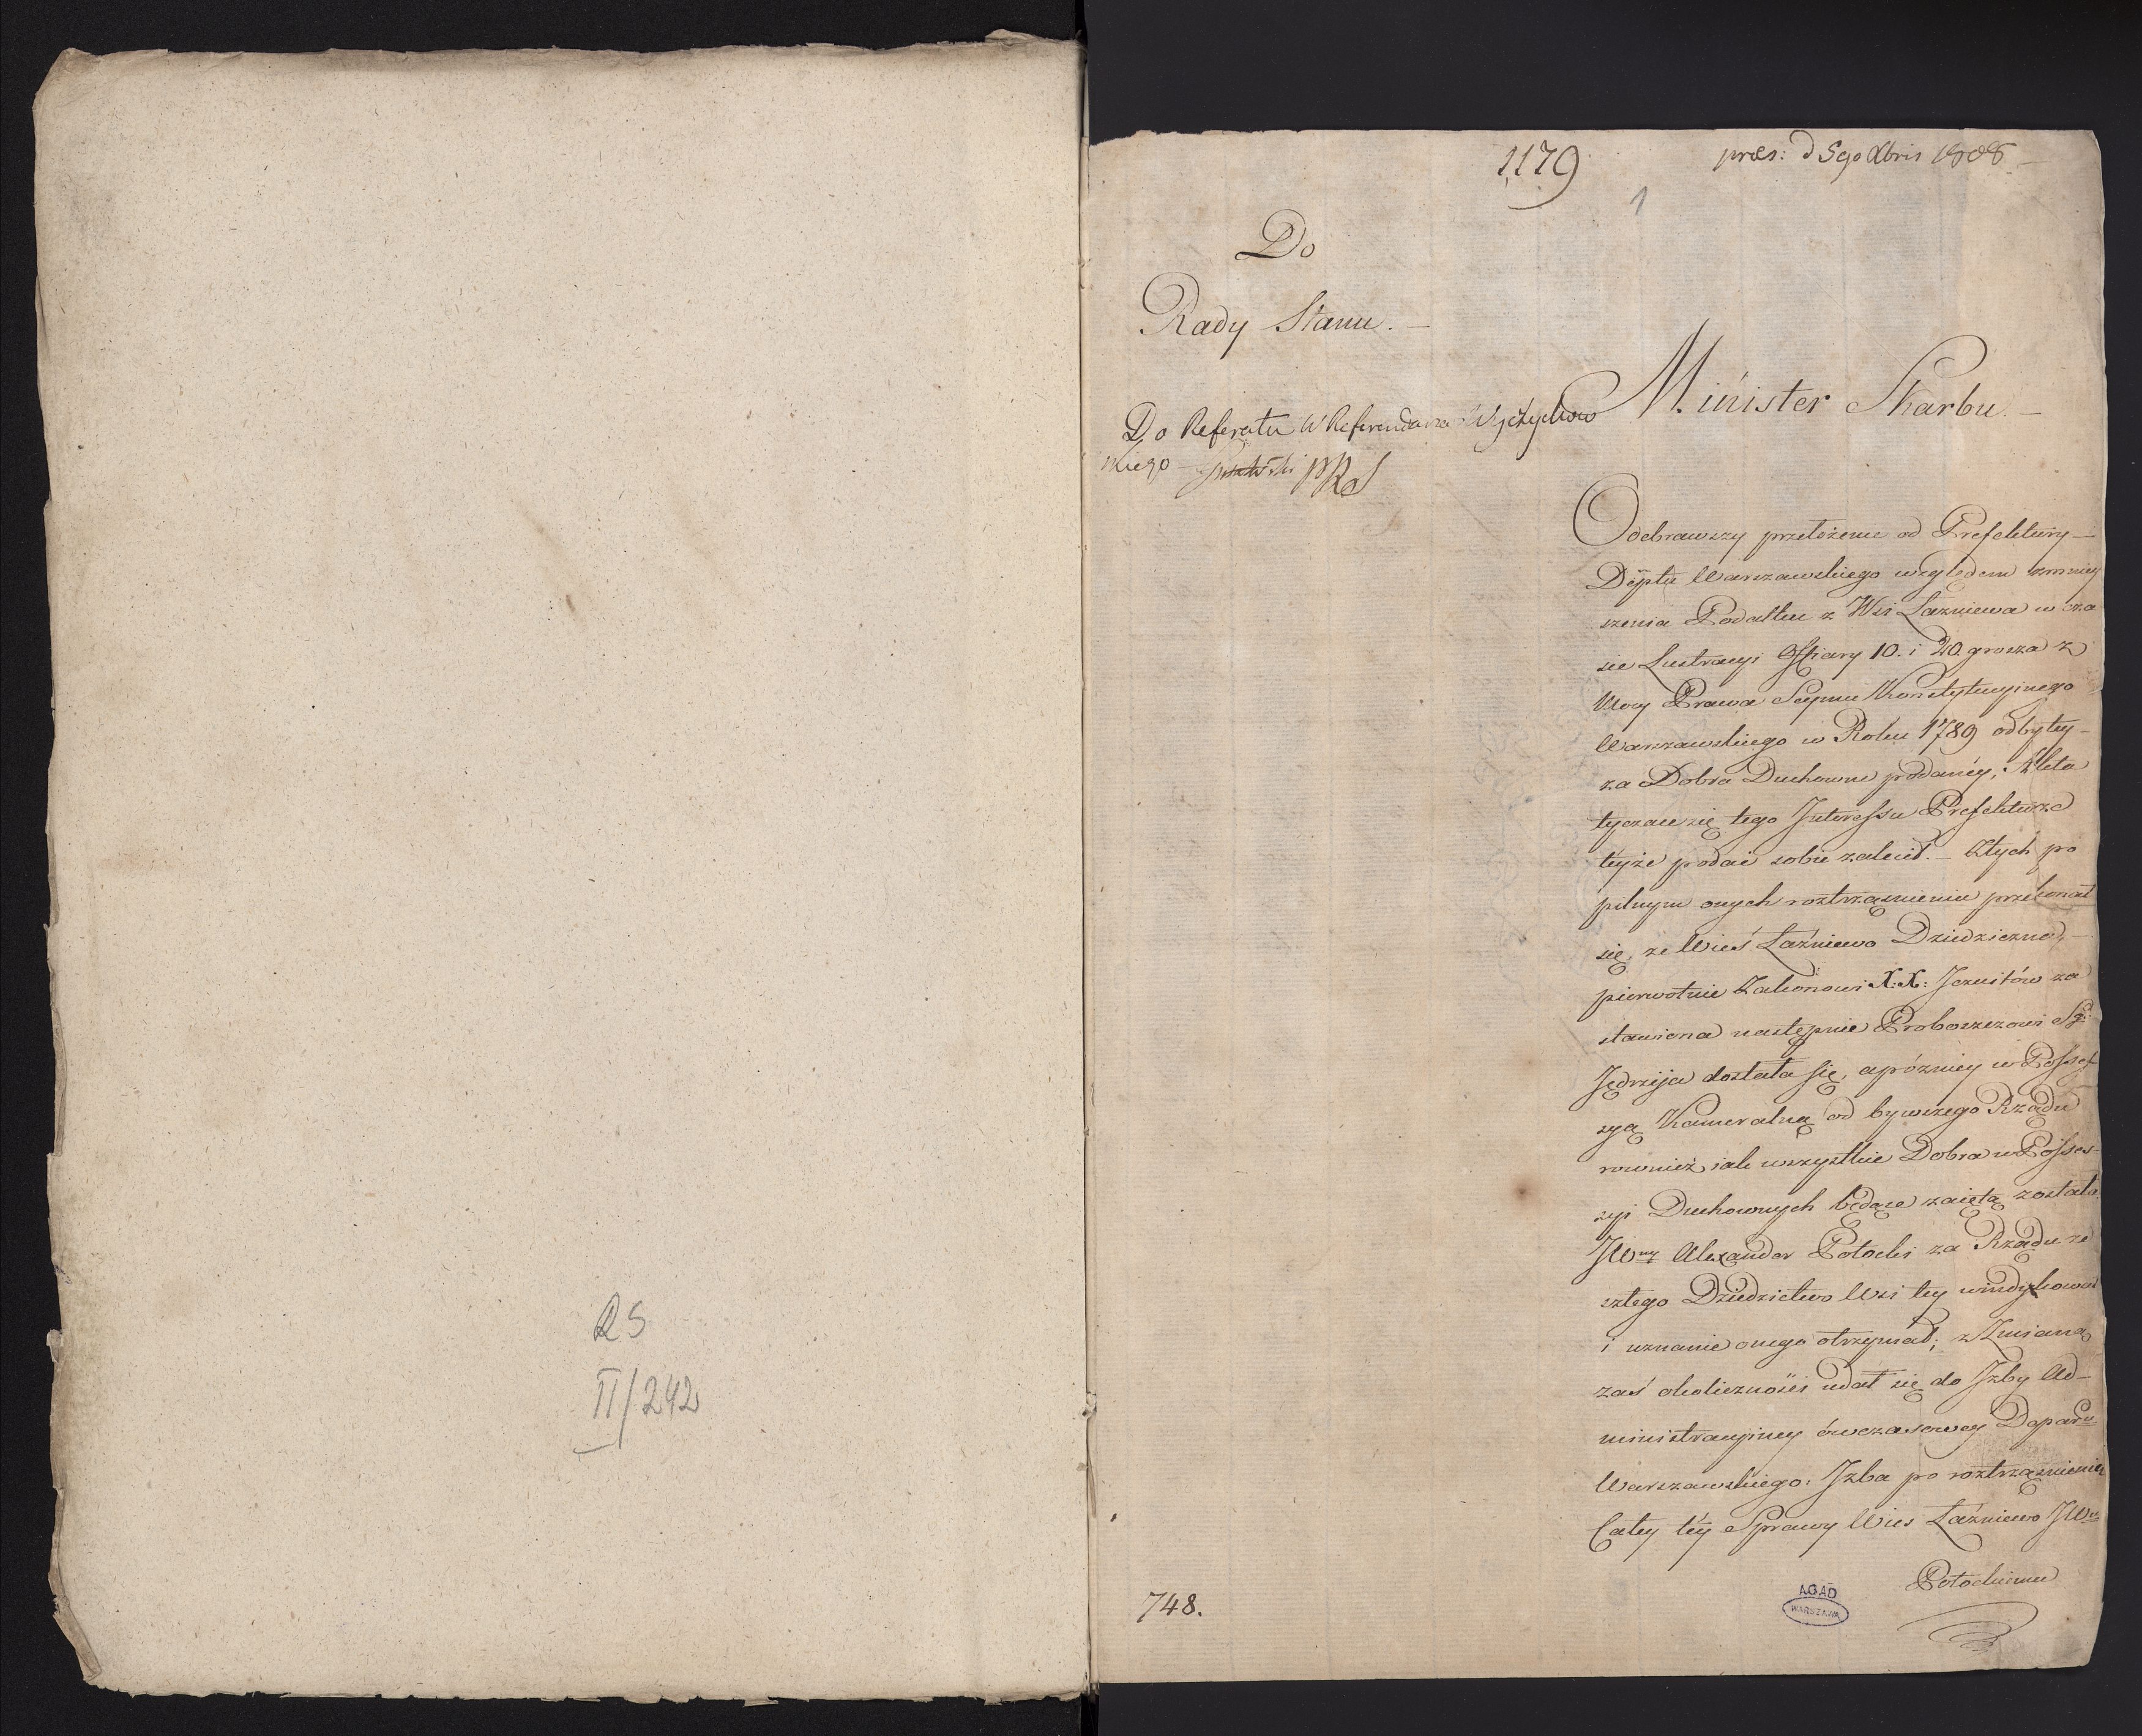 RS
II/242
1179
præs: d 5go Xbris 1808
1
Do
Rady Stanu.
Do Referatu W Referendarza Wyczechow
skiego
Minister Skarbu.
Odebrawszy przełożenie od Prefektury
Deptu Warszawskiego względem zmniey
szenia Podatku z Wsi Łaźniewa w cza
sie Lustracyi Offiary 10. i 20. grosza z
Mocy Prawa Seymu Konstytucyinego
Warszawskiego w Roku 1789 odbytey
za Dobra Duchowne podanéy, Akta
tyczące się tego Interessu Prefekturze
teyże podać sobie zalecił. Z tych po
pilnym onych roztrząśnieniu przekonał
się, że Wieś Łaźniewo Dziedziczne,
pierwotnie Zakonowi X:X: Jezuitów za
stawiona następnie Proboszczowi Sgo
Jędrzeja dostała się, a późniey w Posses
syą Kameralną od bywszego Rządu
rownież iak wszystkie Dobra w Posses
syi Duchownych będące zaiętą została.
JWny Alexander Potocki za Rządu ze
szłego Dziedzictwo Wsi tey windykował
i uznanie onego otrzymał; z Zmianą
zaś okoliczności udał się do Izby Ad-
ministracyiney ówczasowey Departu
Warszawskiego: Izba po roztrząśnieniu
Całey téy Sprawy Wieś Łaźniewo JWu
Potockiemu
748.
AGAD
WARSZAWA